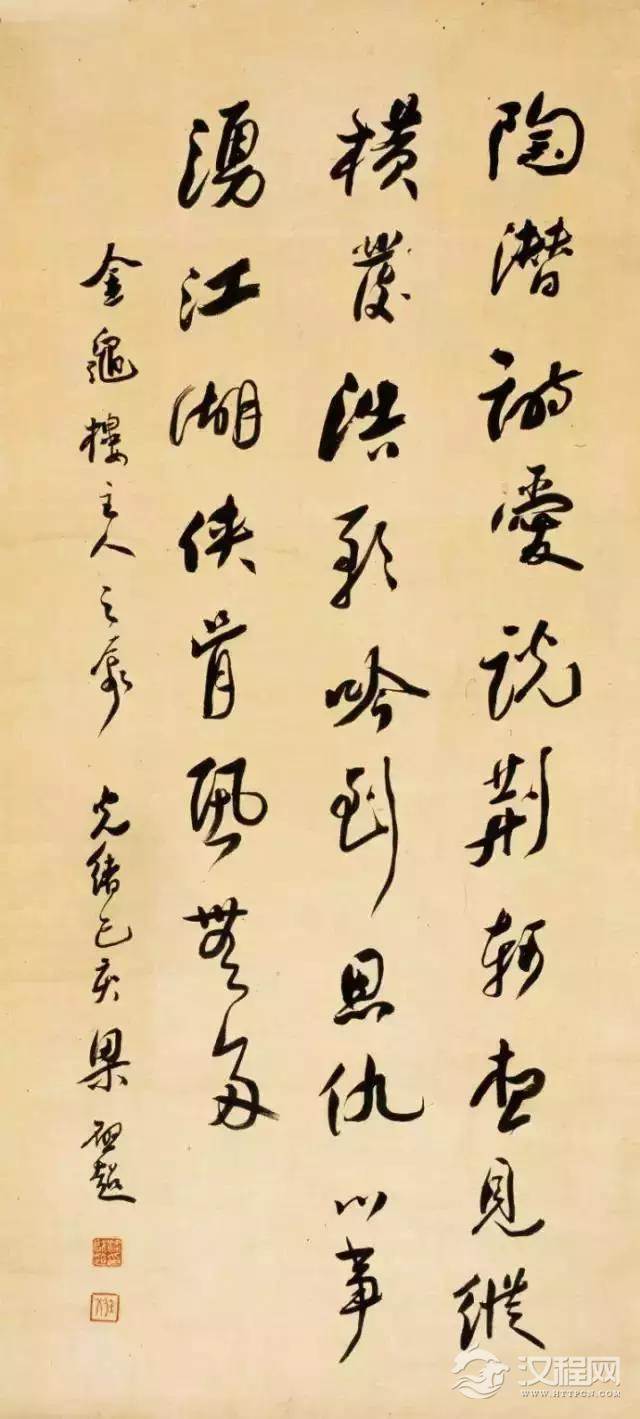 陶潛詩愛說荊軻想見縱
橫發浩歌吟到恩仇心事
湧江湖俠骨風無多
金龜樓主人之屬 光緒己亥 梁啟超
汉程网
WWW.HTTPCN.COM